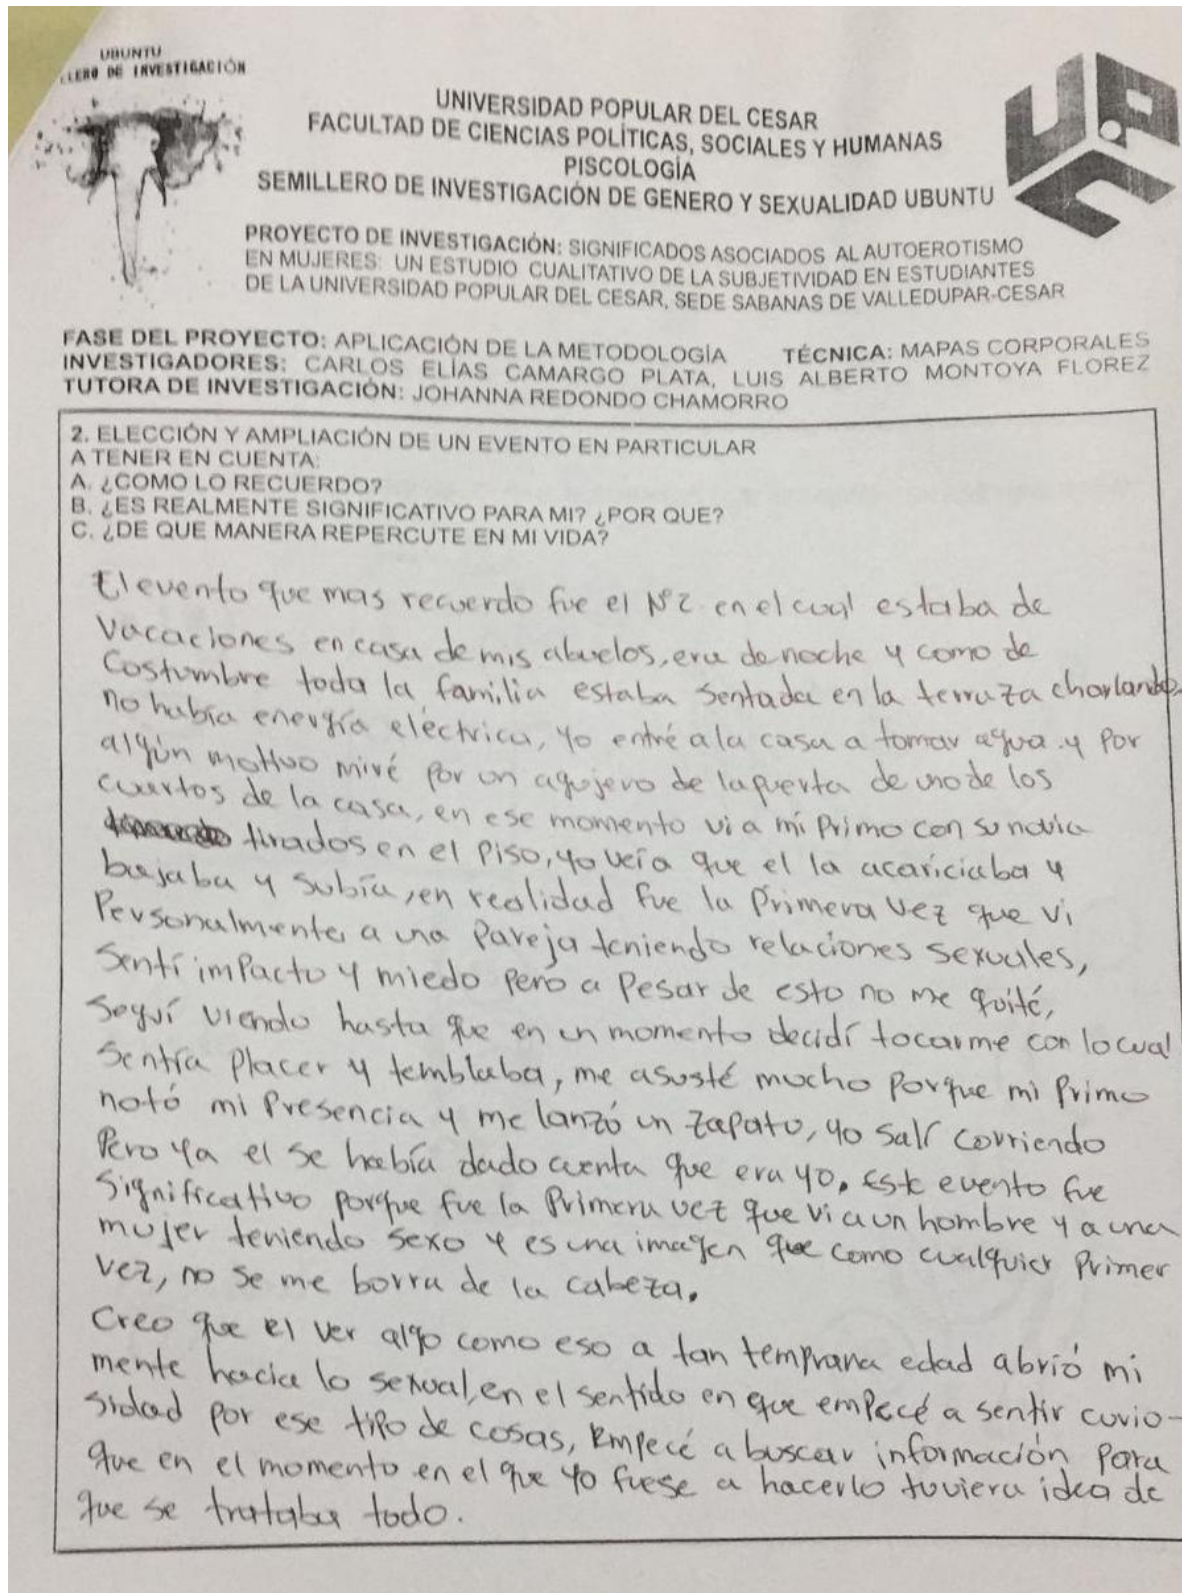 UBUNTU
LLERO DE INVESTIGACIÓN
UNIVERSIDAD POPULAR DEL CESAR
FACULTAD DE CIENCIAS POLÍTICAS, SOCIALES Y HUMANAS
PISCOLOGÍA
SEMILLERO DE INVESTIGACIÓN DE GENERO Y SEXUALIDAD UBUNTU
PROYECTO DE INVESTIGACIÓN: SIGNIFICADOS ASOCIADOS AL AUTOEROTISMO
EN MUJERES: UN ESTUDIO CUALITATIVO DE LA SUBJETIVIDAD EN ESTUDIANTES
DE LA UNIVERSIDAD POPULAR DEL CESAR, SEDE SABANAS DE VALLEDUPAR-CESAR
FASE DEL PROYECTO: APLICACIÓN DE LA METODOLOGÍA TÉCNICA: MAPAS CORPORALES
INVESTIGADORES: CARLOS ELÍAS CAMARGO PLATA, LUIS ALBERTO MONTOYA FLOREZ
TUTORA DE INVESTIGACIÓN: JOHANNA REDONDO CHAMORRO
2. ELECCIÓN Y AMPLIACIÓN DE UN EVENTO EN PARTICULAR
A TENER EN CUENTA:
A. ¿COMO LO RECUERDO?
B. ¿ES REALMENTE SIGNIFICATIVO PARA MI? ¿POR QUE?
C. ¿DE QUE MANERA REPERCUTE EN MI VIDA?
El evento que mas recuerdo fue el Nº2 en el cual estaba de
Vacaciones en casa de mis abuelos, era de noche y como de
Costumbre toda la familia estaba sentada en la terraza charlando,
no había energía eléctrica, yo entré a la casa a tomar agua y por
algún motivo miré por un agujero de la puerta de uno de los
cuartos de la casa, en ese momento vi a mi Primo con su novia
tirados en el Piso, yo veía que el la acariciaba y
bajaba y subía, en realidad fue la Primera vez que vi
Personalmente a una Pareja teniendo relaciones sexuales,
Sentí impacto y miedo pero a pesar de esto no me quité,
Seguí viendo hasta que en un momento decidí tocarme con lo cual
Sentía placer y temblaba, me asusté mucho porque mi Primo
notó mi Presencia y me lanzó un zapato, yo salí corriendo
Pero ya el se había dado cuenta que era yo. Este evento fue
Significativo porque fue la Primera vez que vi a un hombre y a una
mujer teniendo sexo y es una imagen que como cualquier Primer
vez, no se me borra de la cabeza.
Creo que el ver algo como eso a tan temprana edad abrió mi
mente hacia lo sexual, en el sentido en que empecé a sentir curio-
sidad por ese tipo de cosas, Empecé a buscar información para
que en el momento en el que yo fuese a hacerlo tuviera idea de
que se trataba todo.